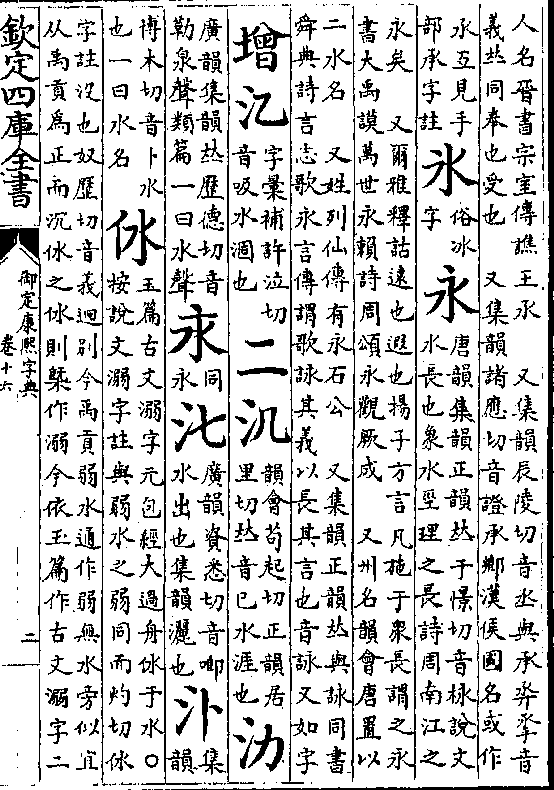 人名晉書宗室傳譙王承　又集韻辰陵切音丞與承
義𠀤同奉也受也　又集韻諸應切音證承鄉漢侯國名或作
水互見手
部承字註
氷
俗冰
字
永
唐韻集韻正韻𠀤于憬切音栐說文
水長也象水巠理之長詩周南江之
永矣　又爾雅釋詁遠也遐也揚子方言凡施于眾長謂之永
書大禹謨萬世永賴詩周頌永觀厥成　又州名韻會唐置以
二水名　又姓列仙傳有永石公　又集韻正韻𠀤與詠同書
舜典詩言志歌永言傳謂歌詠其義以長其言也音詠又如字
增
字彙補許泣切
音吸水涸也
二
氿
韻會苟起切正韻居
里切𠀤音己水涯也
氻
廣韻集韻𠀤歷德切音
勒泉聲類篇一曰水聲
𣱵
同
永
廣韻資悉切音唧
水出也集韻灑也
集
韻
博木切音卜水
也一曰水名
㲻
玉篇古文溺字元包經大過舟㲻于水○
按說文溺字註與弱水之弱同而灼切㲻
字註沒也奴歷切音義迥別今禹貢弱水通作弱無水旁似宜
从禹貢為正而沉㲻之㲻則槩作溺今依玉篇作古文溺字二
欽定四庫全書
御定康熙字典
卷十六
二